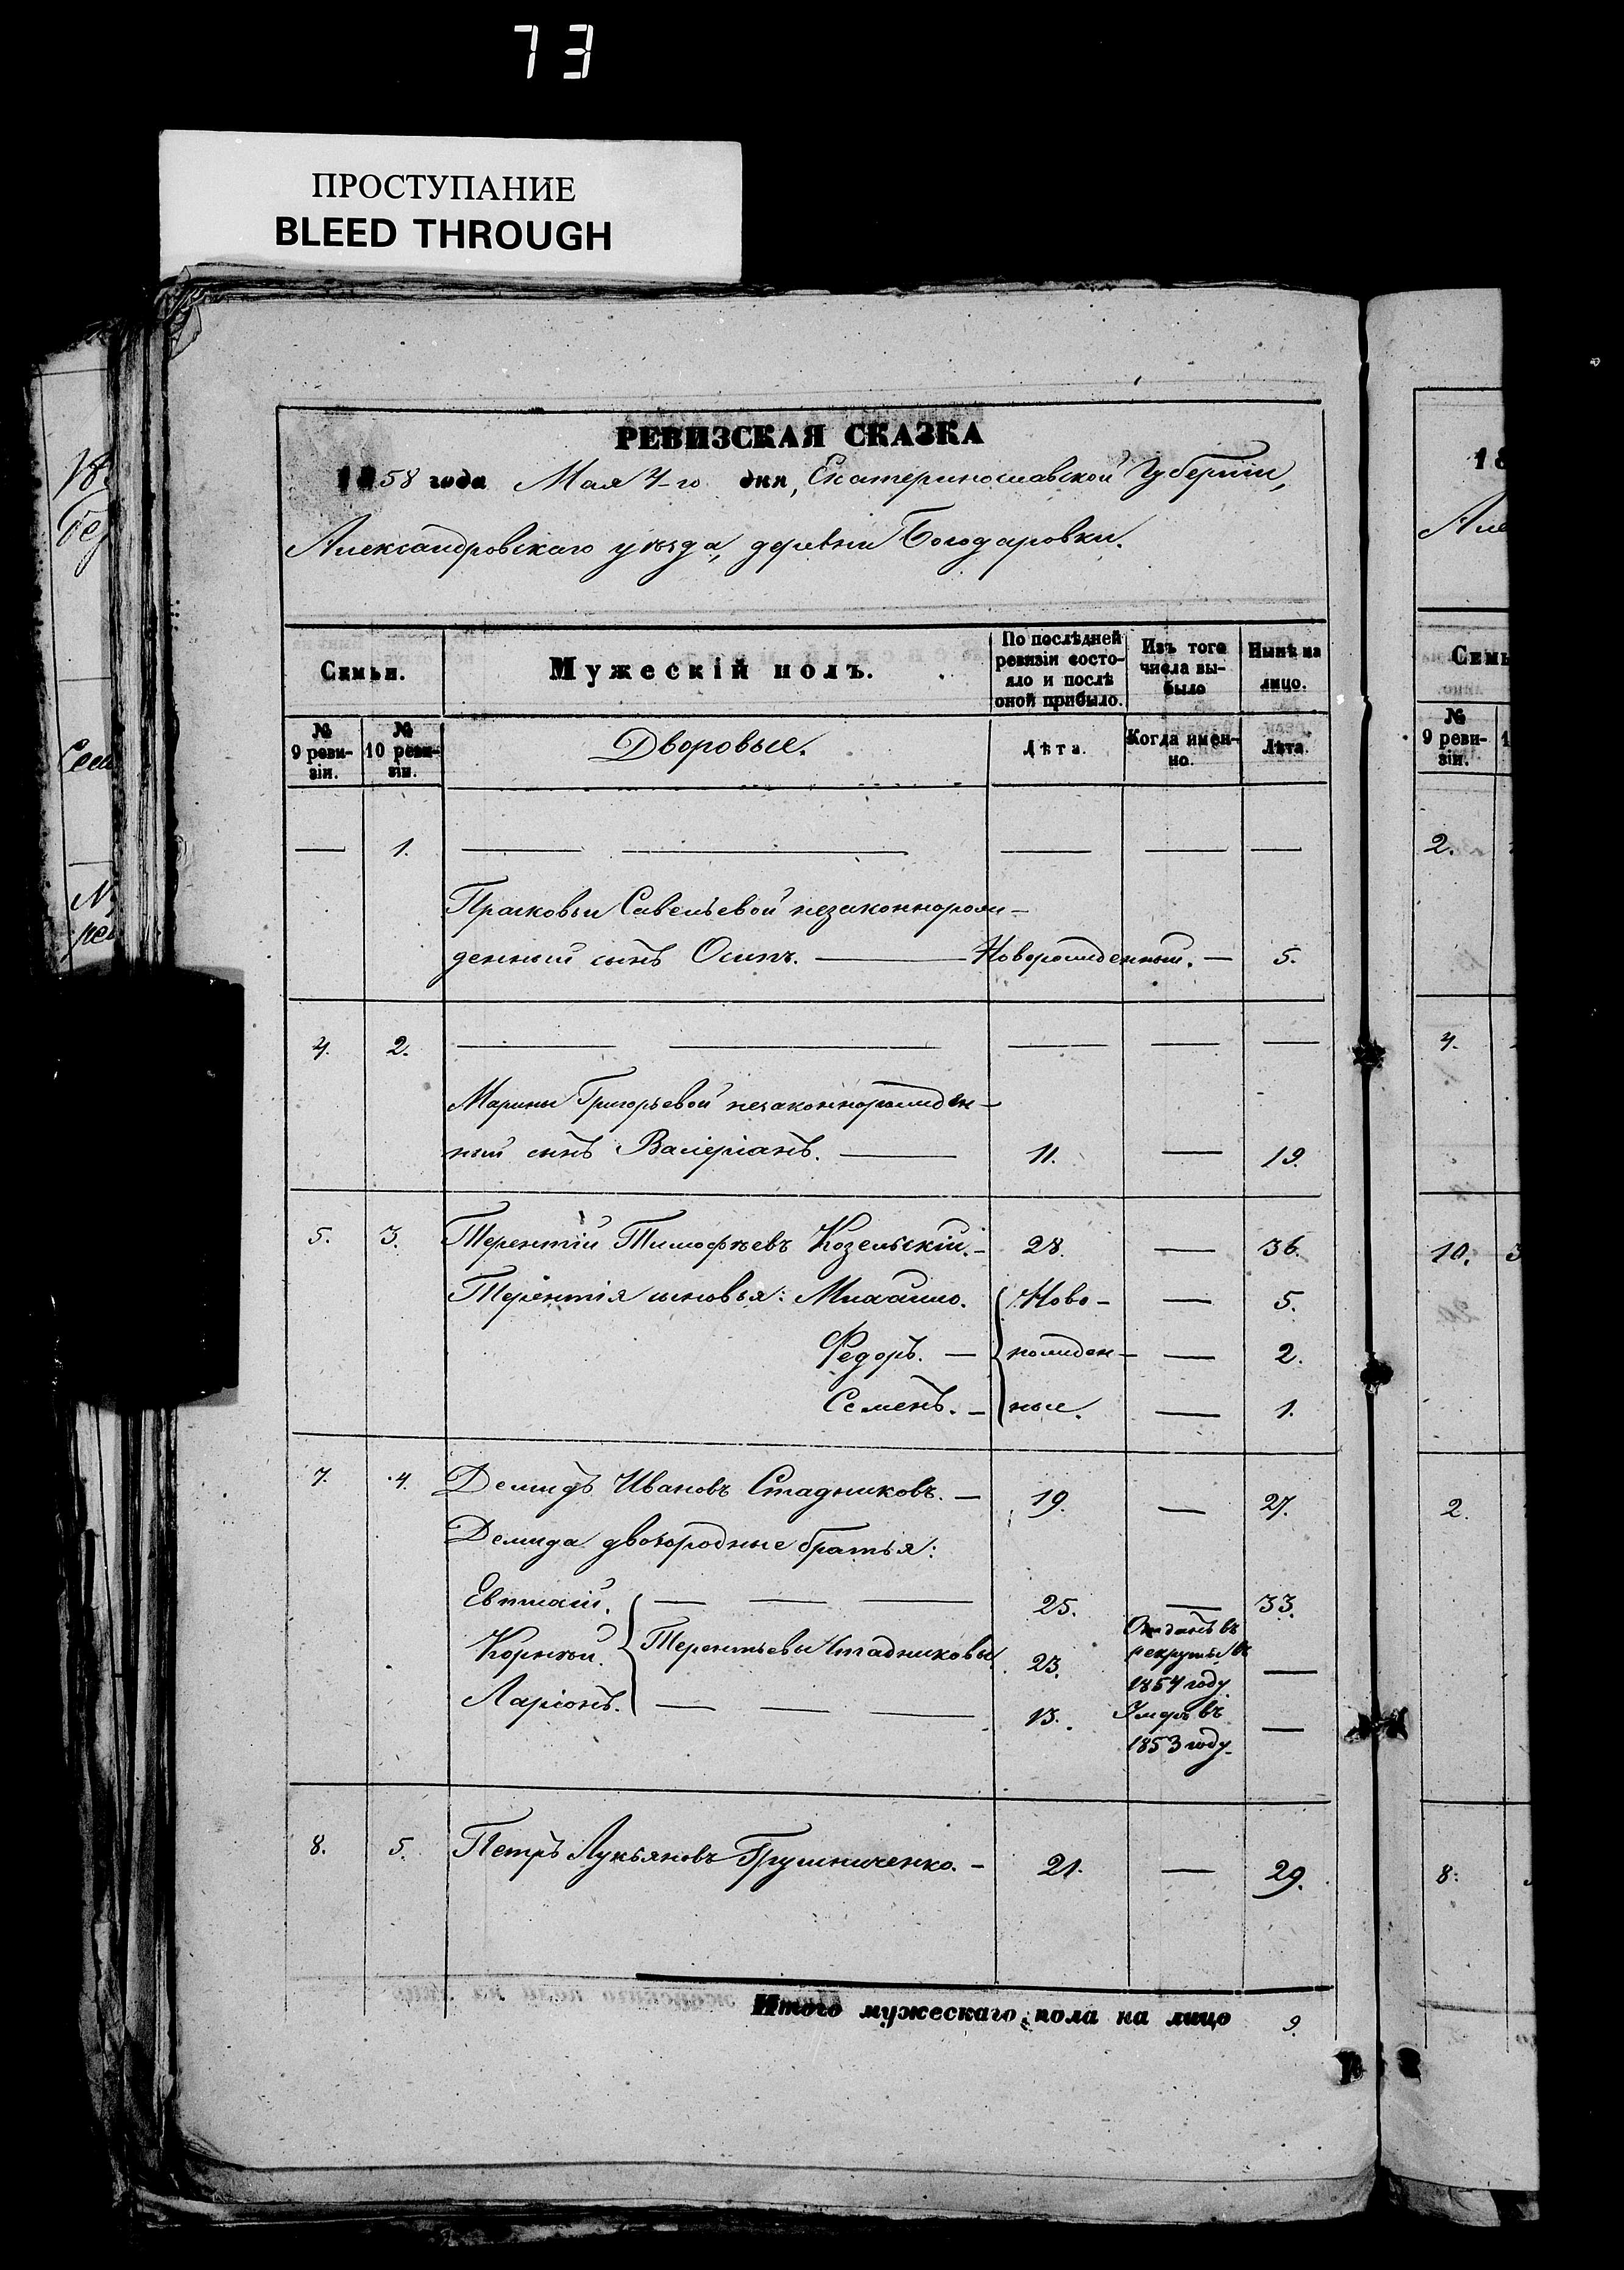 73
ПРОСТУПАНИЕ
BLEED THROUGH
РЕВИЗСКАЯ СКАЗКА
1858 года Мая 4-го дня, Екатеринославской Губерніи,
Александровскаго уѣзда, деревни Богодаровки.
Семьи.
Мужескій полъ.
По послѣдней ревизіи состояло и послѣ оной прибыло.
Изъ того числа выбыло
Нынѣ на лицо.
№ 9 ревизіи.
№ 10 ревизіи.
Дворовые.
Лѣта.
Когда именно.
Лѣта
— 1. — — — — —
Прасковьи Савельевой незаконнорож-
денный сынъ Осипъ. — Новорожденный. — 5.
4. 2. — — — — —
Марины Григорьевой незаконнорожден-
ный сынъ Валеріанъ. — 11. — 19.
5. 3. Терентій Тимофѣевъ Козельскій. — 28. — 36.
Терентія сыновья: Михаило. Ново- — 5.
Федоръ. — рожден- — 2.
Семенъ. — ные. — 1.
7. 4. Демидъ Ивановъ Стадниковъ. — 19. — 27.
Демида двоюродные братья:
Евтихій. — — — 25. — 33.
Корнѣй. Терентьевы Стадниковы 23. Отданъ въ рекруты въ 1854 году. —
Ларіонъ. — — — 13. Умеръ въ 1853 году. —
8. 5. Петръ Лукьяновъ Грушниченко. — 21. — 29.
Итого мужескаго пола на лицо 9.
18
Але
Семь
№ 9 ревизіи.
2.
4.
10. 3
2.
8.